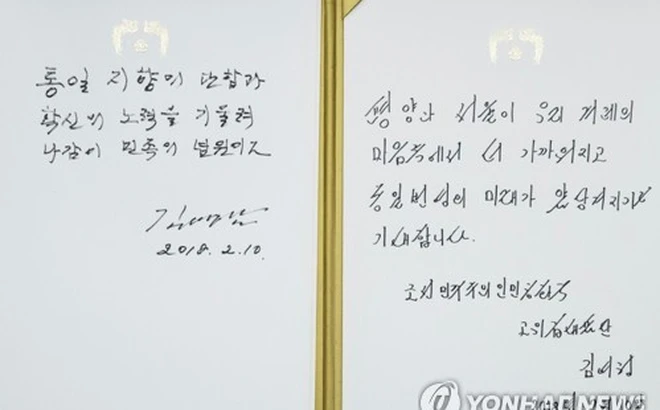 통일 지향의 단합과
확신의 노력을 기울려
나감이 민족의 념원이오
김영남
2018. 2. 10.
평양과 서울이 우리 겨레의
마음속에서 더 가까워지고
통일번영의 미래가 앞당겨지기를
기대합니다.
조선민주주의인민공화국
고위급대표단
김여정
2018년 2월 10일
© YONHAP NEWS